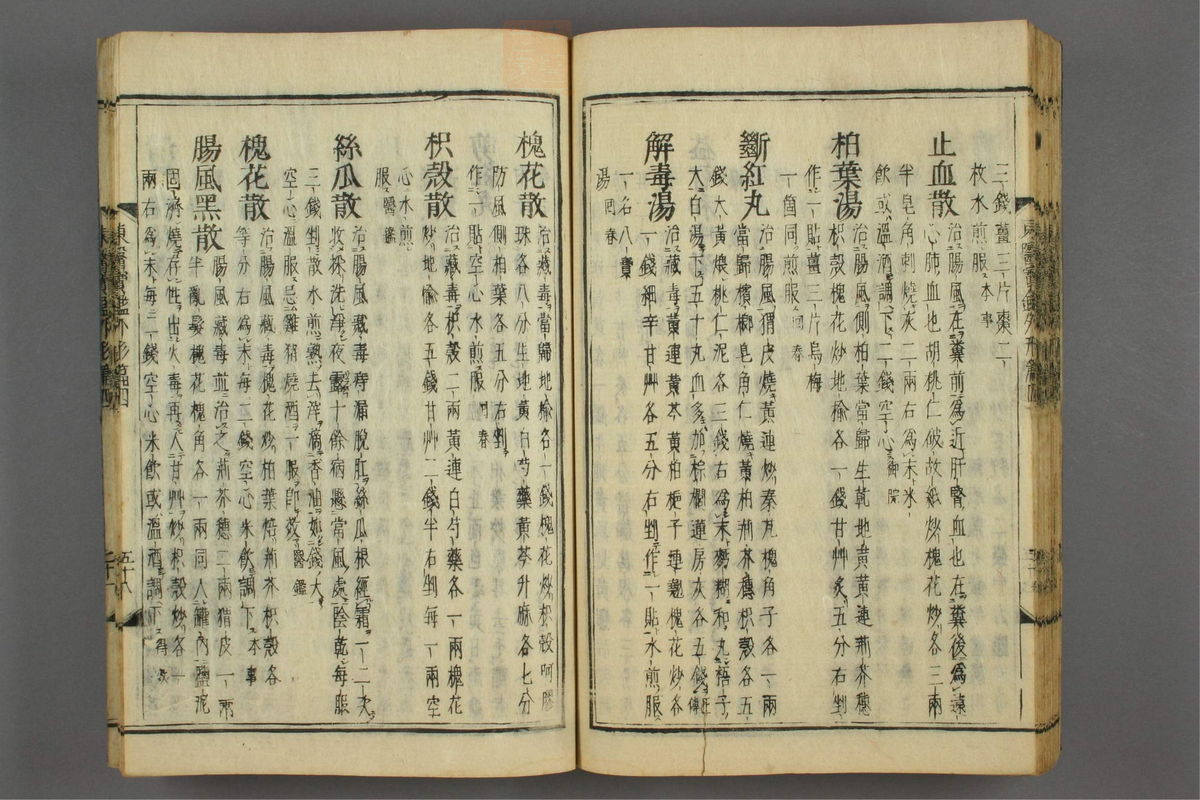 三錢薑三片棗二
枚水煎服本事
止血散治腸風在糞前爲近肝腎血也在糞後爲遠
心肺血也胡桃仁破故紙炒槐花炒各三兩
半皂角刺燒灰二兩右爲末米
飮或溫酒調下二錢空心御院
柏葉湯治腸風側柏葉當歸生乾地黃黃連荊芥穗
枳殼槐花炒地楡各一錢甘艸炙五分右剉
作一貼薑三片烏梅
一箇同煎服回春
斷紅丸治腸風猬皮燒黃連炒秦艽槐角子各一兩
當歸檳榔皂角仁燒黃柏荊芥穗枳殼各五
錢大黃煨桃仁泥各三錢右爲末麪糊和丸梧子
大白湯下五十丸血多加棕櫚蓮房灰各五錢
解毒湯治藏毒黃連黃芩黃柏梔子連翹槐花炒各
一錢細辛甘艸各五分右剉作一貼水煎服
一名八寶
湯回春
槐花散治藏毒當歸地楡各一錢槐花炒枳殼阿膠
珠各八分生地黃白芍藥黃芩升麻各七分
防風側柏葉各五分右剉
作一貼空心水煎服回春
枳殼散治藏毒枳殼二兩黃連白芍藥各一兩槐花
炒地楡各五錢甘艸二錢半右剉每一兩空
心水煎
服醫鑑
絲瓜散治腸風藏毒痔漏脫肛絲瓜根經霜一二次
收採洗淨夜露十餘病懸當風處陰乾每服
三錢剉散水煎熟去滓滴香油如錢大
空心溫服忌雞猪燒酒一服卽效醫鑑
槐花散治腸風藏毒槐花炒柏葉焙荊芥枳殼各
等分右爲末每二錢空心米飮調下本事
腸風黑散腸風藏毒前治之荊芥穗二兩猬皮一兩
半亂髮槐花槐角各一兩同入罐內鹽泥
固濟燒存性出火毒再入甘艸炒枳殼炒各一
兩右爲末每二錢空心米飮或溫酒調下得效
東醫寶鑑外形篇四
五十八